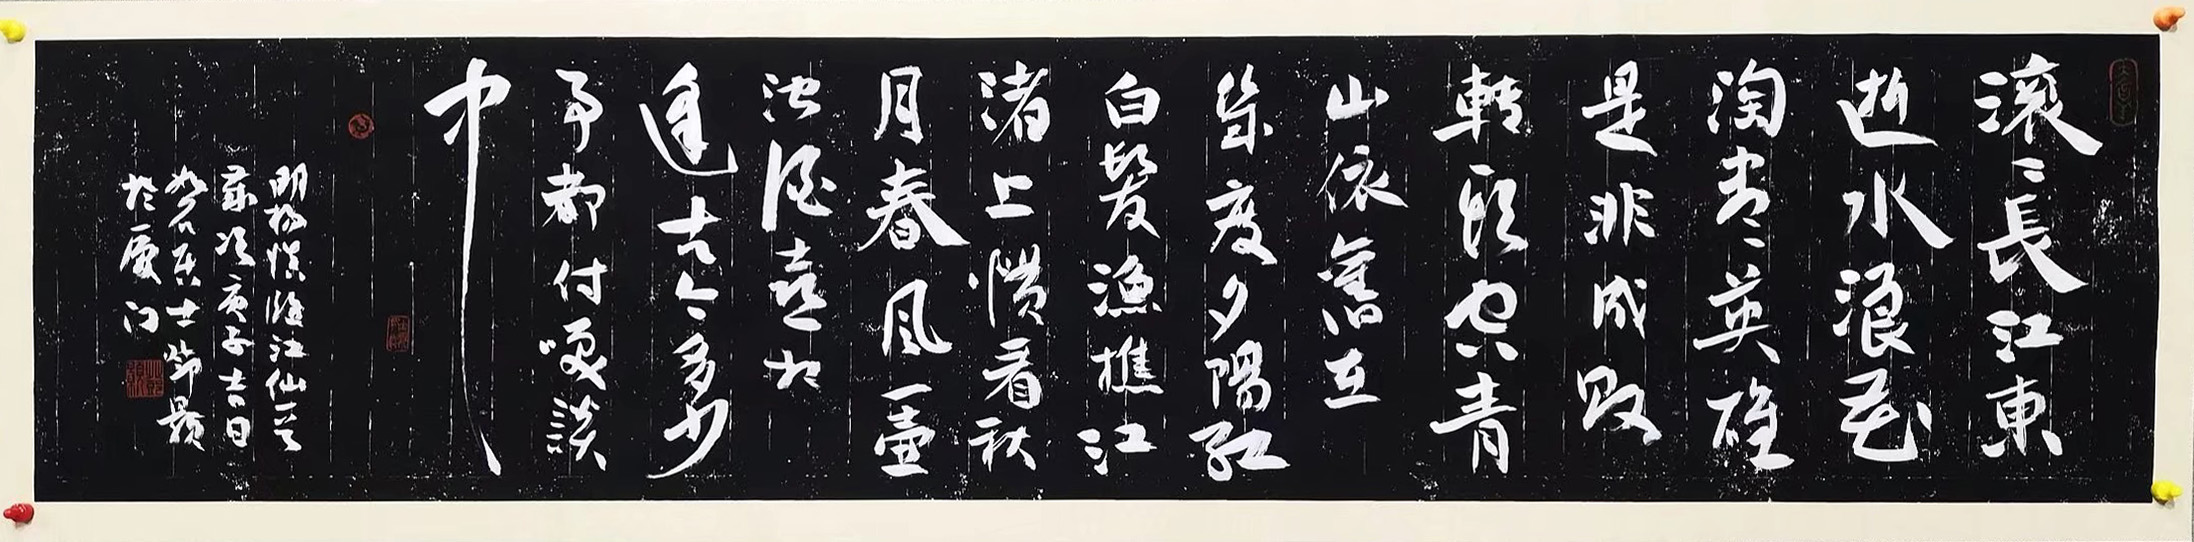 滚〻長江東
逝水浪花
淘尽英雄
是非成敗
轉頭空青
山依舊在
幾度夕陽紅
白髮漁樵江
渚上慣看秋
月春風一壺
濁酒喜相
逢古今多少
事都付笑談
中
明杨慎臨江仙一首
歲次庚子吉日
居士
於廈门